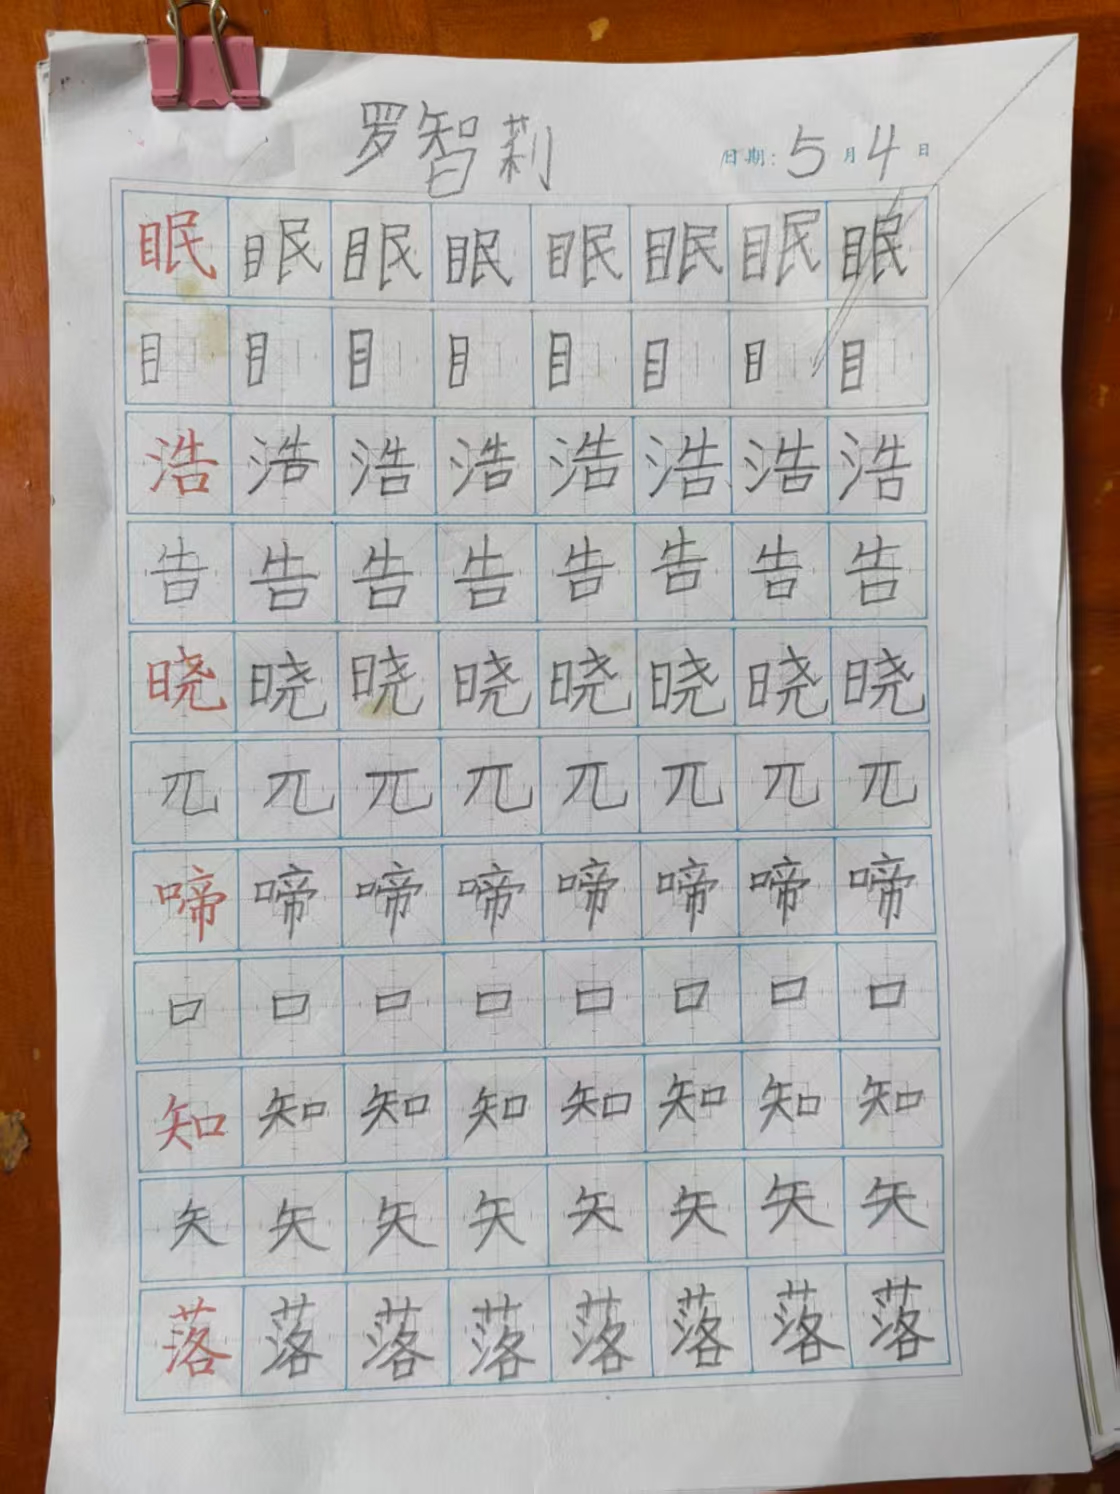 罗智莉
日期：5月4日
眠眠眠眠眠眠眠眠
目目目目目目目目
浩浩浩浩浩浩浩浩
告告告告告告告告
晓晓晓晓晓晓晓晓
兀兀兀兀兀兀兀兀
啼啼啼啼啼啼啼啼
口口口口口口口口
知知知知知知知知
矢矢矢矢矢矢矢矢
落落落落落落落落